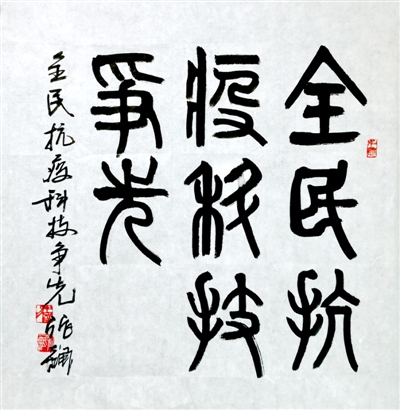 全民抗
疫科技
争先
全民抗疫科技争先